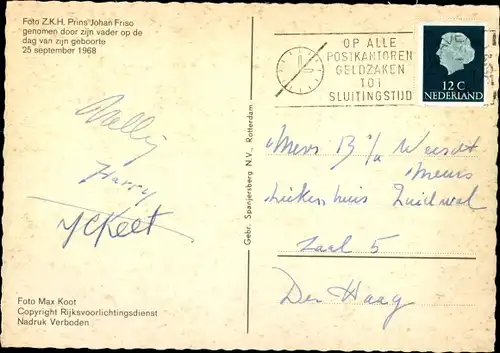 Foto Z.K.H. Prins Johan Friso
genomen door zijn vader op de
dag van zijn geboorte
25 september 1968
OP ALLE
POSTKANTOREN
GELDZAKEN
TOT
SLUITINGSTIJD
12 C
NEDERLAND
Nelly
Harry
Gebr. Spanjersberg N.V., Rotterdam
Mevr B
Meurs
Ziekenhuis Zuidwal
Zaal 5
Den Haag
Foto Max Koot
Copyright Rijksvoorlichtingsdienst
Nadruk Verboden